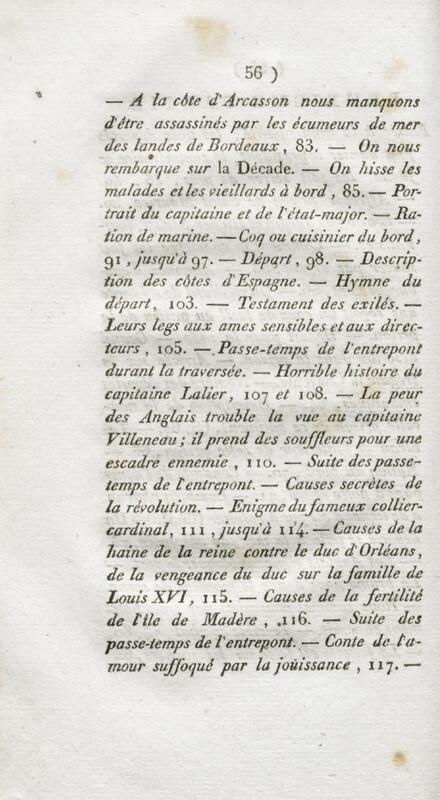 56 )
— A la côte d'Arcasson nous manquons
d'être assassinés par les écumeurs de mer
des landes de Bordeaux , 83. — On nous
rembarque sur la Décade. — On hisse les
malades et les vieillards à bord , 85. — Por-
trait du capitaine et de l'état-major. — Ra-
tion de marine. — Coq ou cuisinier du bord ,
91 , jusqu'à 97. — Départ , 98. — Descrip-
tion des côtes d'Espagne. — Hymne du
départ, 103. — Testament des exilés. —
Leurs legs aux ames sensibles et aux direc-
teurs , 105. — Passe-temps de l'entrepont
durant la traversée. — Horrible histoire du
capitaine Lalier, 107 et 108. — La peur
des Anglais trouble la vue au capitaine
Villeneau ; il prend des souffleurs pour une
escadre ennemie , 110. — Suite des passe-
temps de l'entrepont. — Causes secrètes de
la révolution. — Enigme du fameux collier-
cardinal, 111 , jusqu'à 114. — Causes de la
haine de la reine contre le duc d'Orléans,
de la vengeance du duc sur la famille de
Louis XVI, 115. — Causes de la fertilité
de l'île de Madère , 116. — Suite des
passe-temps de l'entrepont. — Conte de l'a-
mour suffoqué par la joüissance , 117. —